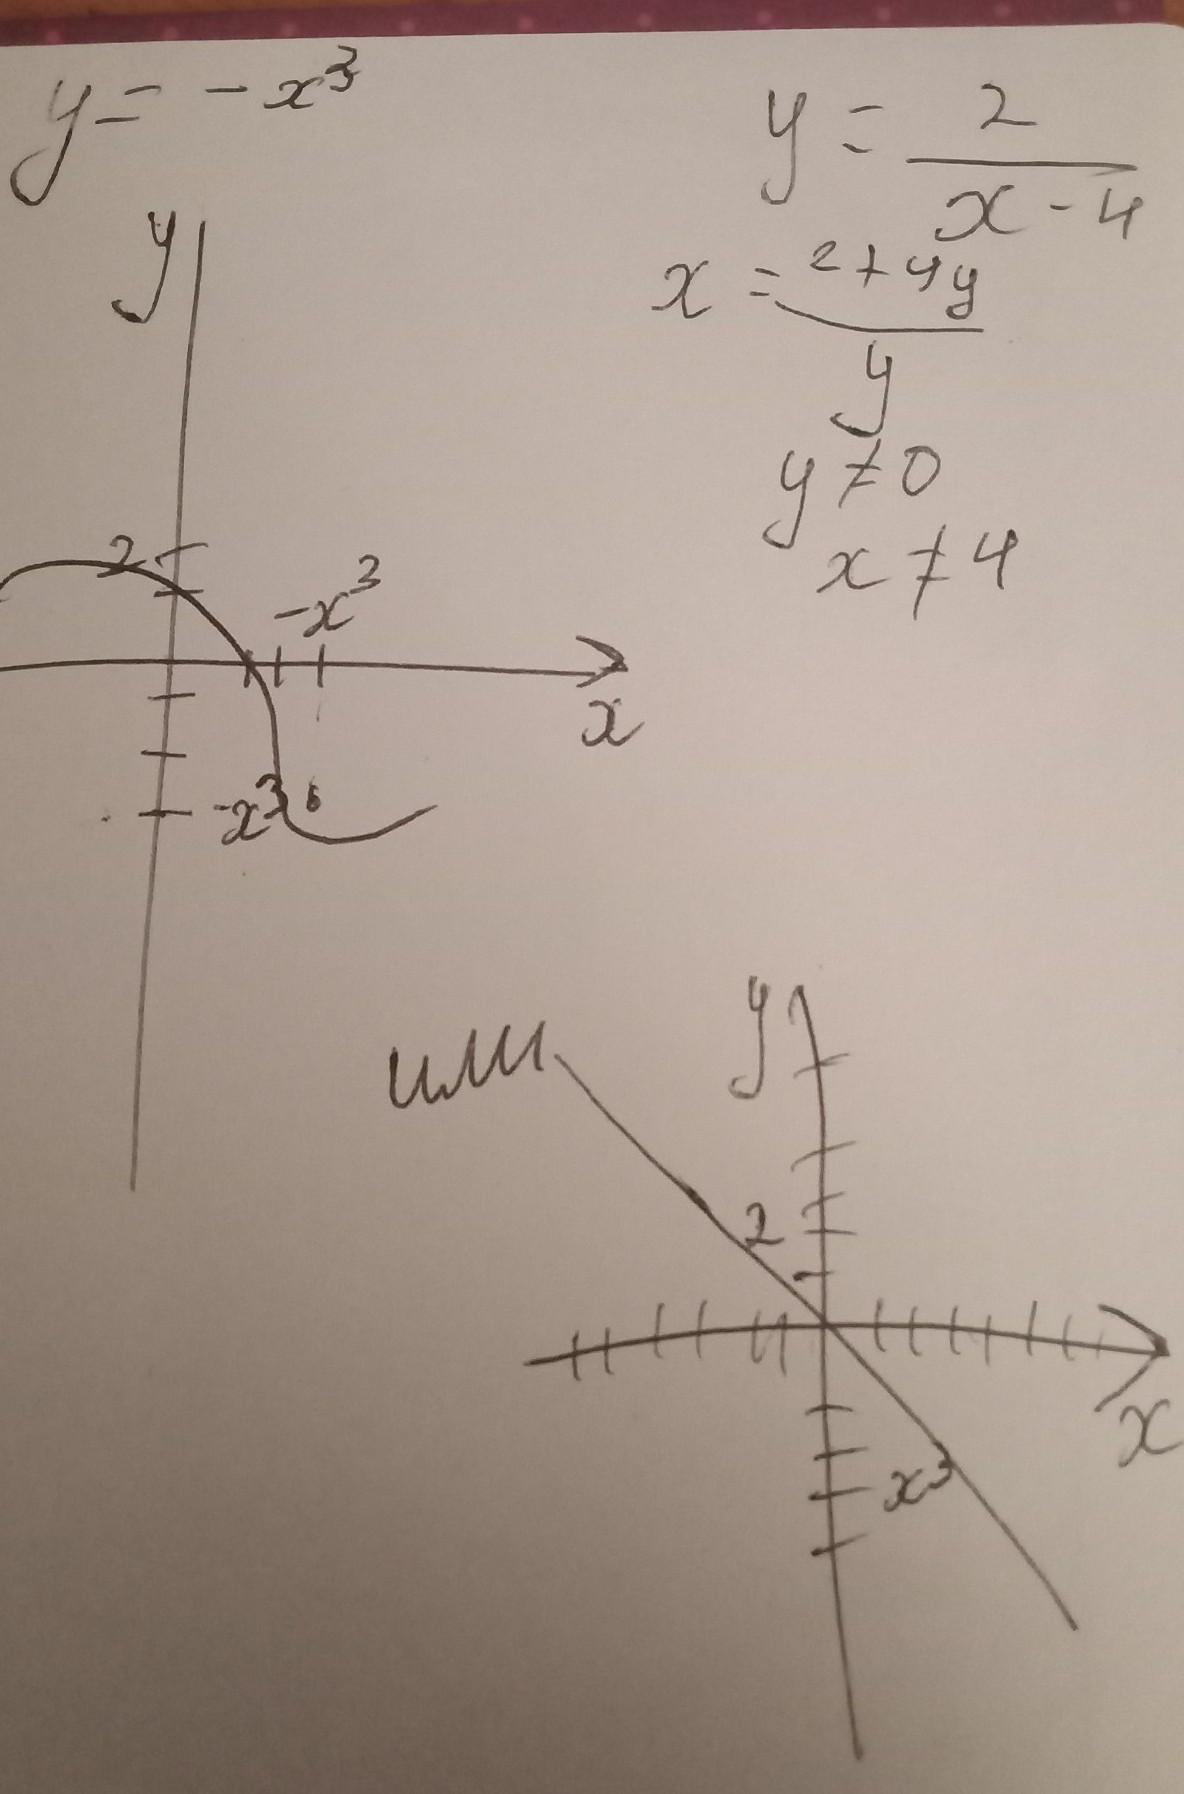 y = -x³
y = 2/(x-4)
x = (2+4y)/y
y ≠ 0
x ≠ 4
y
2
-x³
x
-x³
или
y
2
x
x³